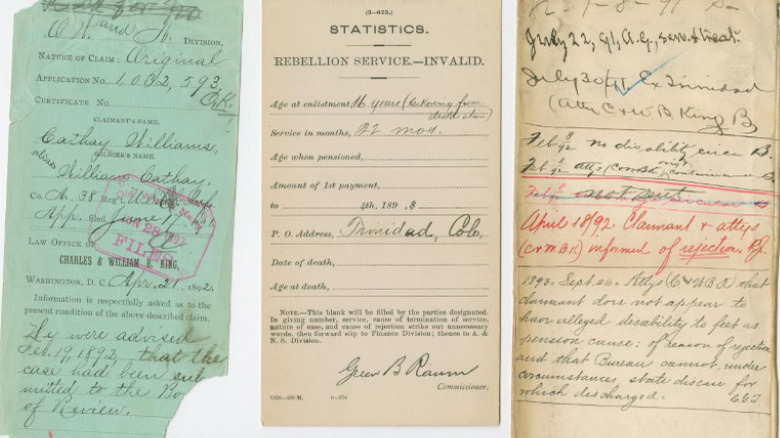 O.W. and N. DIVISION.
NATURE OF CLAIM: Original
APPLICATION No. 1,032,593
CERTIFICATE No.
CLAIMANT'S NAME.
Cathay Williams,
alias SOLDIER'S NAME.
William Cathay.
Co. A. 38 Reg't, U.S.
App. filed June
LAW OFFICE OF
CHARLES & WILLIAM B. KING,
WASHINGTON, D. C. Apr. 21, 1892.
Information is respectfully asked as to the
present condition of the above described claim.
We were advised
Feb. 19, 1892, that the
case had been sub
mitted to the Bo
of Review.
FILES
(3—623.)
STATISTICS.
REBELLION SERVICE.—INVALID.
Age at enlistment 16 years
Service in months, 22 mos.
Age when pensioned,
Amount of 1st payment,
to 4th, 189 , $
P. O. Address, Trinidad, Colo.
Date of death,
Age at death,
NOTE.—This blank will be filled by the parties designated.
In giving number, service, cause of termination of service,
nature of case, and cause of rejection strike out unnecessary
words, then forward slip to Finance Division; thence to A. &
N. S. Division.
Green B Raum
Commissioner.
July 22, 91, A.G., serv. & treat.
July 30/91 Ex. Trinidad
(Atty C & W B. King B)
Feb 9/92 no disability
Feb 9/92 Attys
April 18/92 Claimant & attys
(C & W B K) informed of rejection.
1893. Sept. 26. Attys (C & W B K) that
claimant does not appear to
have alleged disability to feet as
pension cause; of reason of rejection
and that Bureau cannot, under
circumstances, state disease for
which discharged.